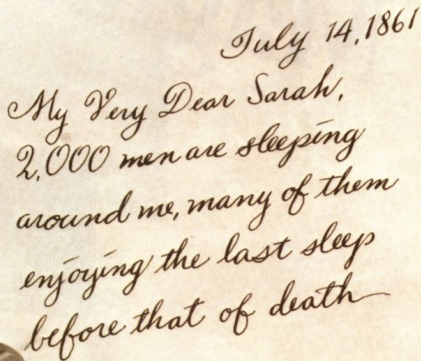 July 14, 1861
My Very Dear Sarah,
2,000 men are sleeping
around me, many of them
enjoying the last sleep
before that of death